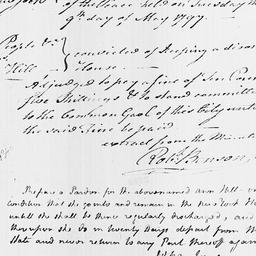 of the Peace held on Tuesday the
9th day of May 1797.
People &c
convicted of keeping a diso
Hill House.
Adjudged to pay a fine of Ten Poun
five Shillings & to stand committed
to the Common Gaol of this City until
the said fine be paid
extract from the Minutes
Robt. Benson,
Prepare a Pardon for the abovenamed Ann Hill on
condition that she go into and remain in the New York Ho
until she shall be thence regularly discharged, and
thereupon she do in twenty Days depart from
State and never return to any Part thereof again